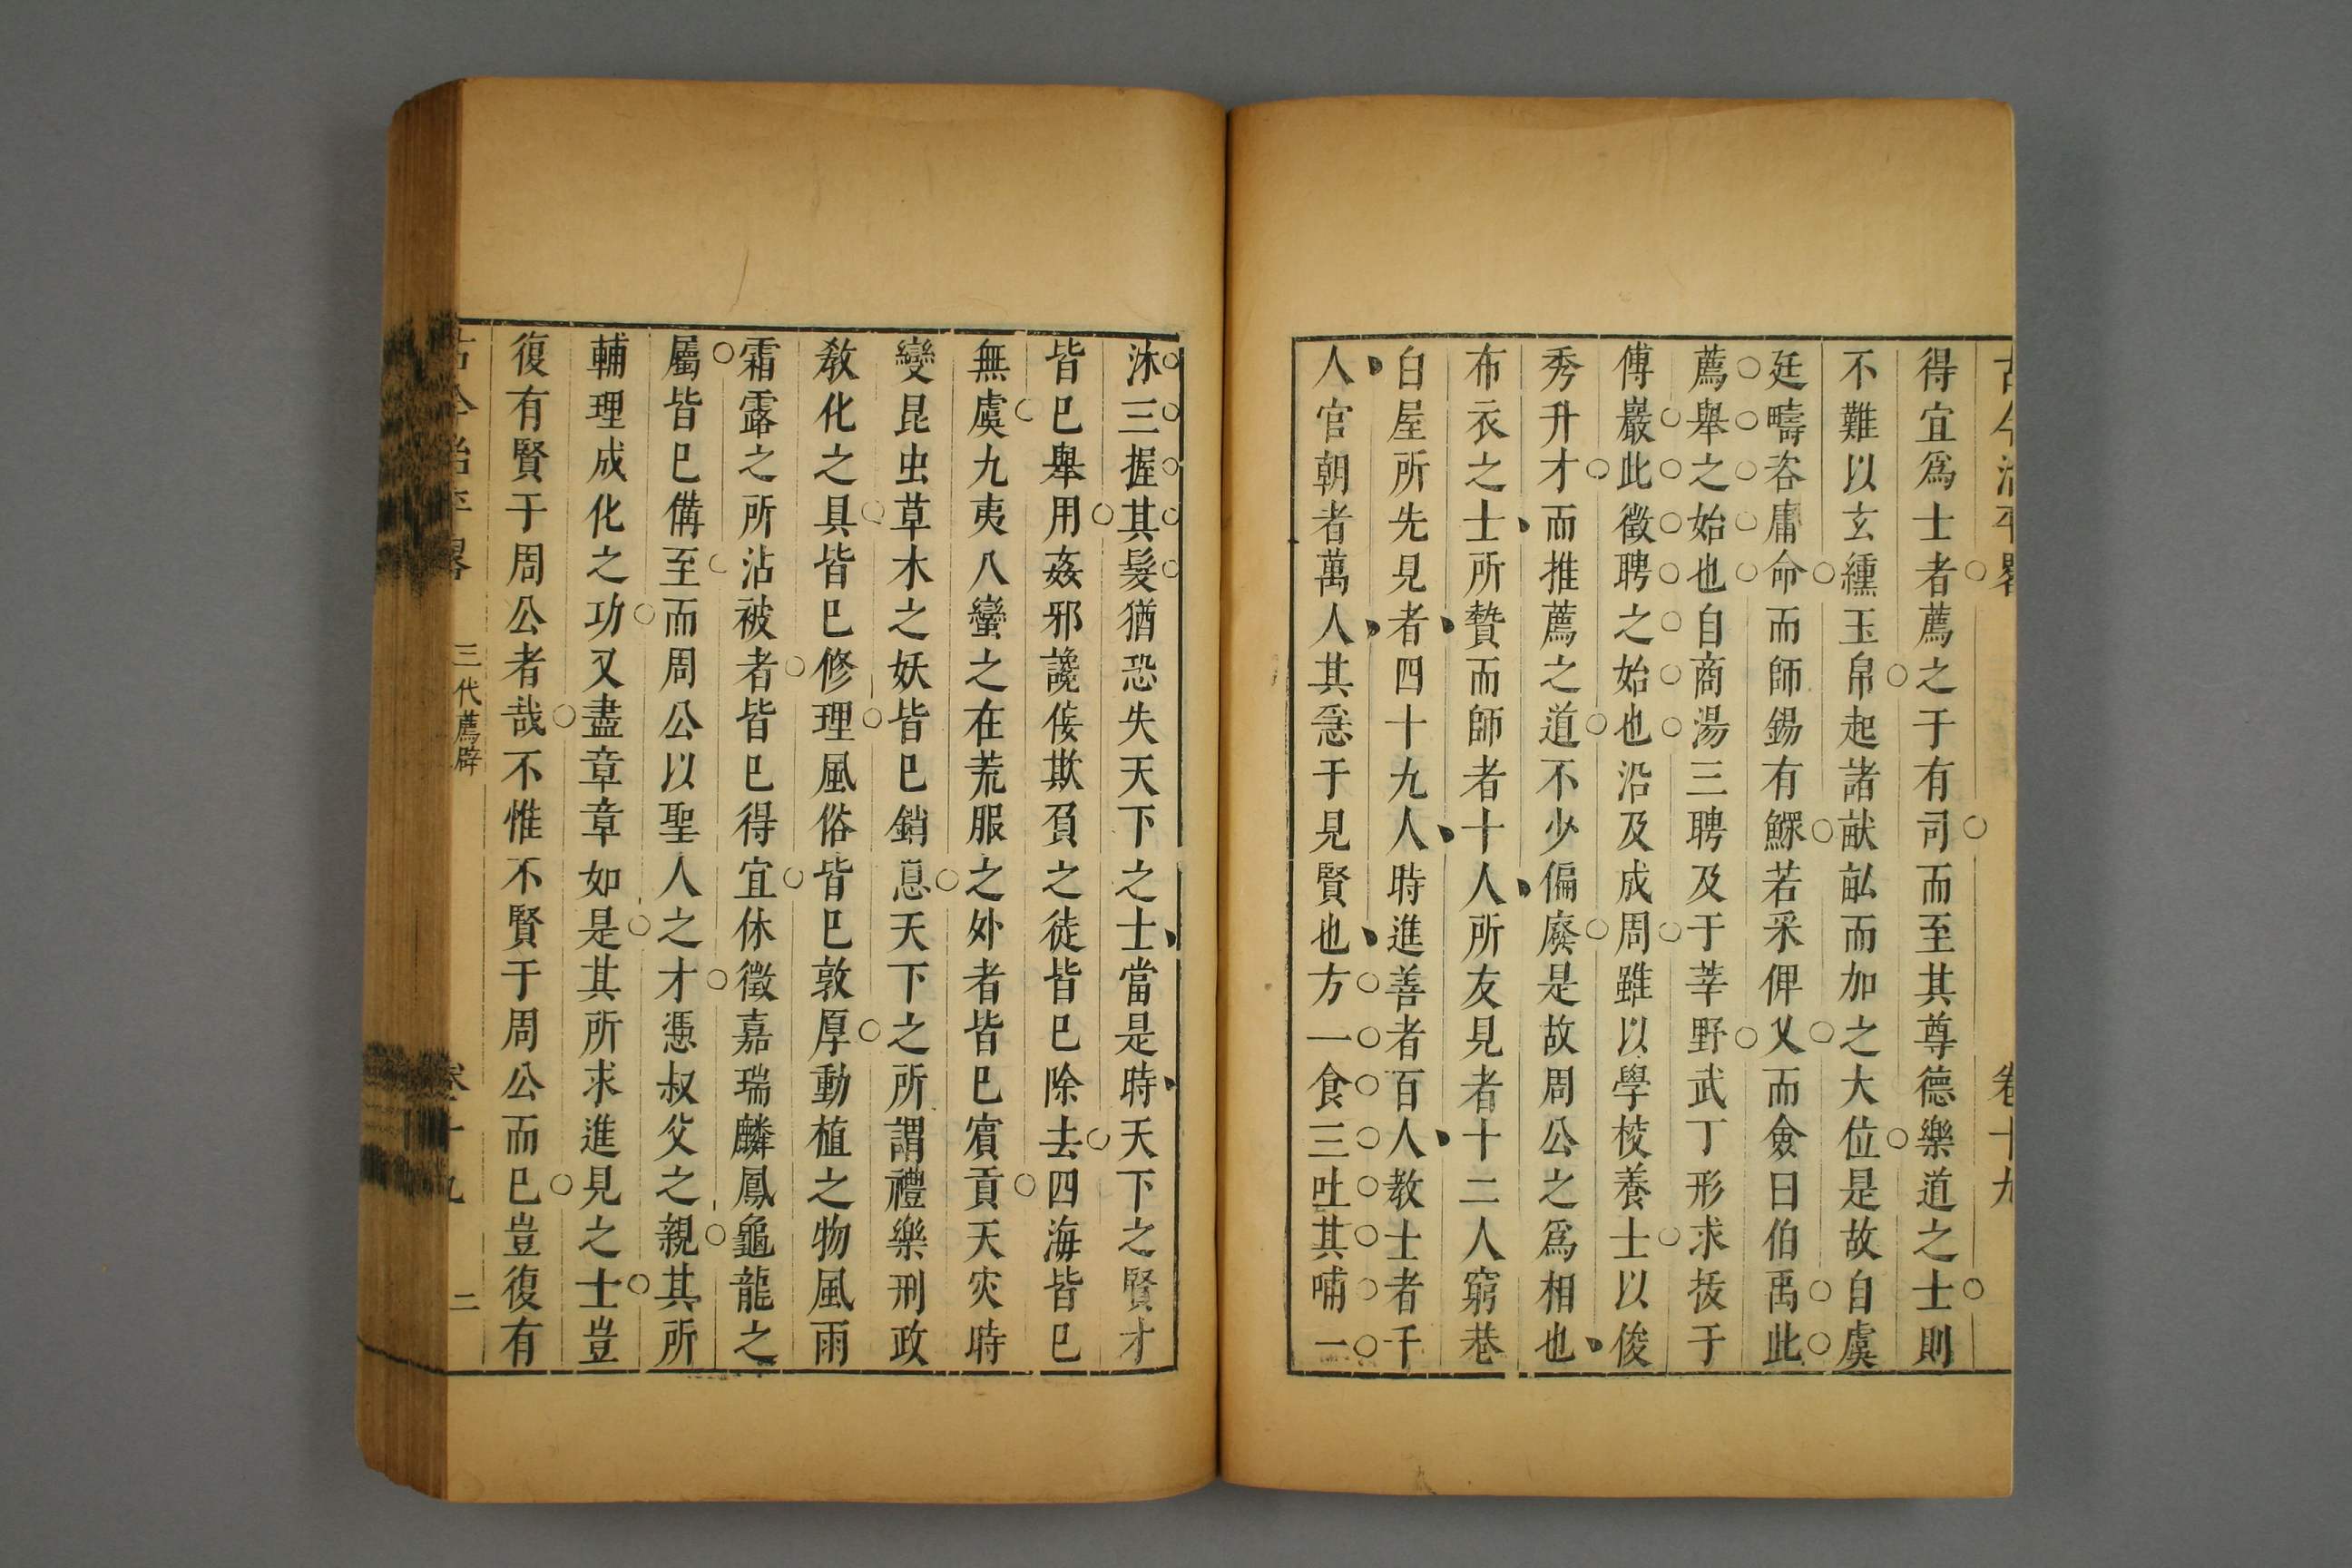 古今治平畧 卷十九
得宜爲士者薦之于有司而至其尊德樂道之士則
不難以玄纁玉帛起諸畎畝而加之大位是故自虞
廷疇咨庸命而師錫有鰥若采俾乂而僉曰伯禹此
薦舉之始也自商湯三聘及于莘野武丁形求拔于
傅巖此徵聘之始也沿及成周雖以學校養士以俊
秀升才而推薦之道不少偏廢是故周公之爲相也
布衣之士所贄而師者十人所友見者十二人窮巷
白屋所先見者四十九人時進善者百人教士者千
人官朝者萬人其急于見賢也方一食三吐其哺一
沐三握其髮猶恐失天下之士當是時天下之賢才
皆已舉用姦邪讒佞欺負之徒皆已除去四海皆已
無虞九夷八蠻之在荒服之外者皆已賓貢天灾時
變昆虫草木之妖皆已銷息天下之所謂禮樂刑政
敎化之具皆已修理風俗皆已敦厚動植之物風雨
霜露之所沾被者皆已得宜休徵嘉瑞麟鳳龜龍之
屬皆已備至而周公以聖人之才憑叔父之親其所
輔理成化之功又盡章章如是其所求進見之士豈
復有賢于周公者哉不惟不賢于周公而已豈復有
古今治平畧 三代薦辟 卷十九 二